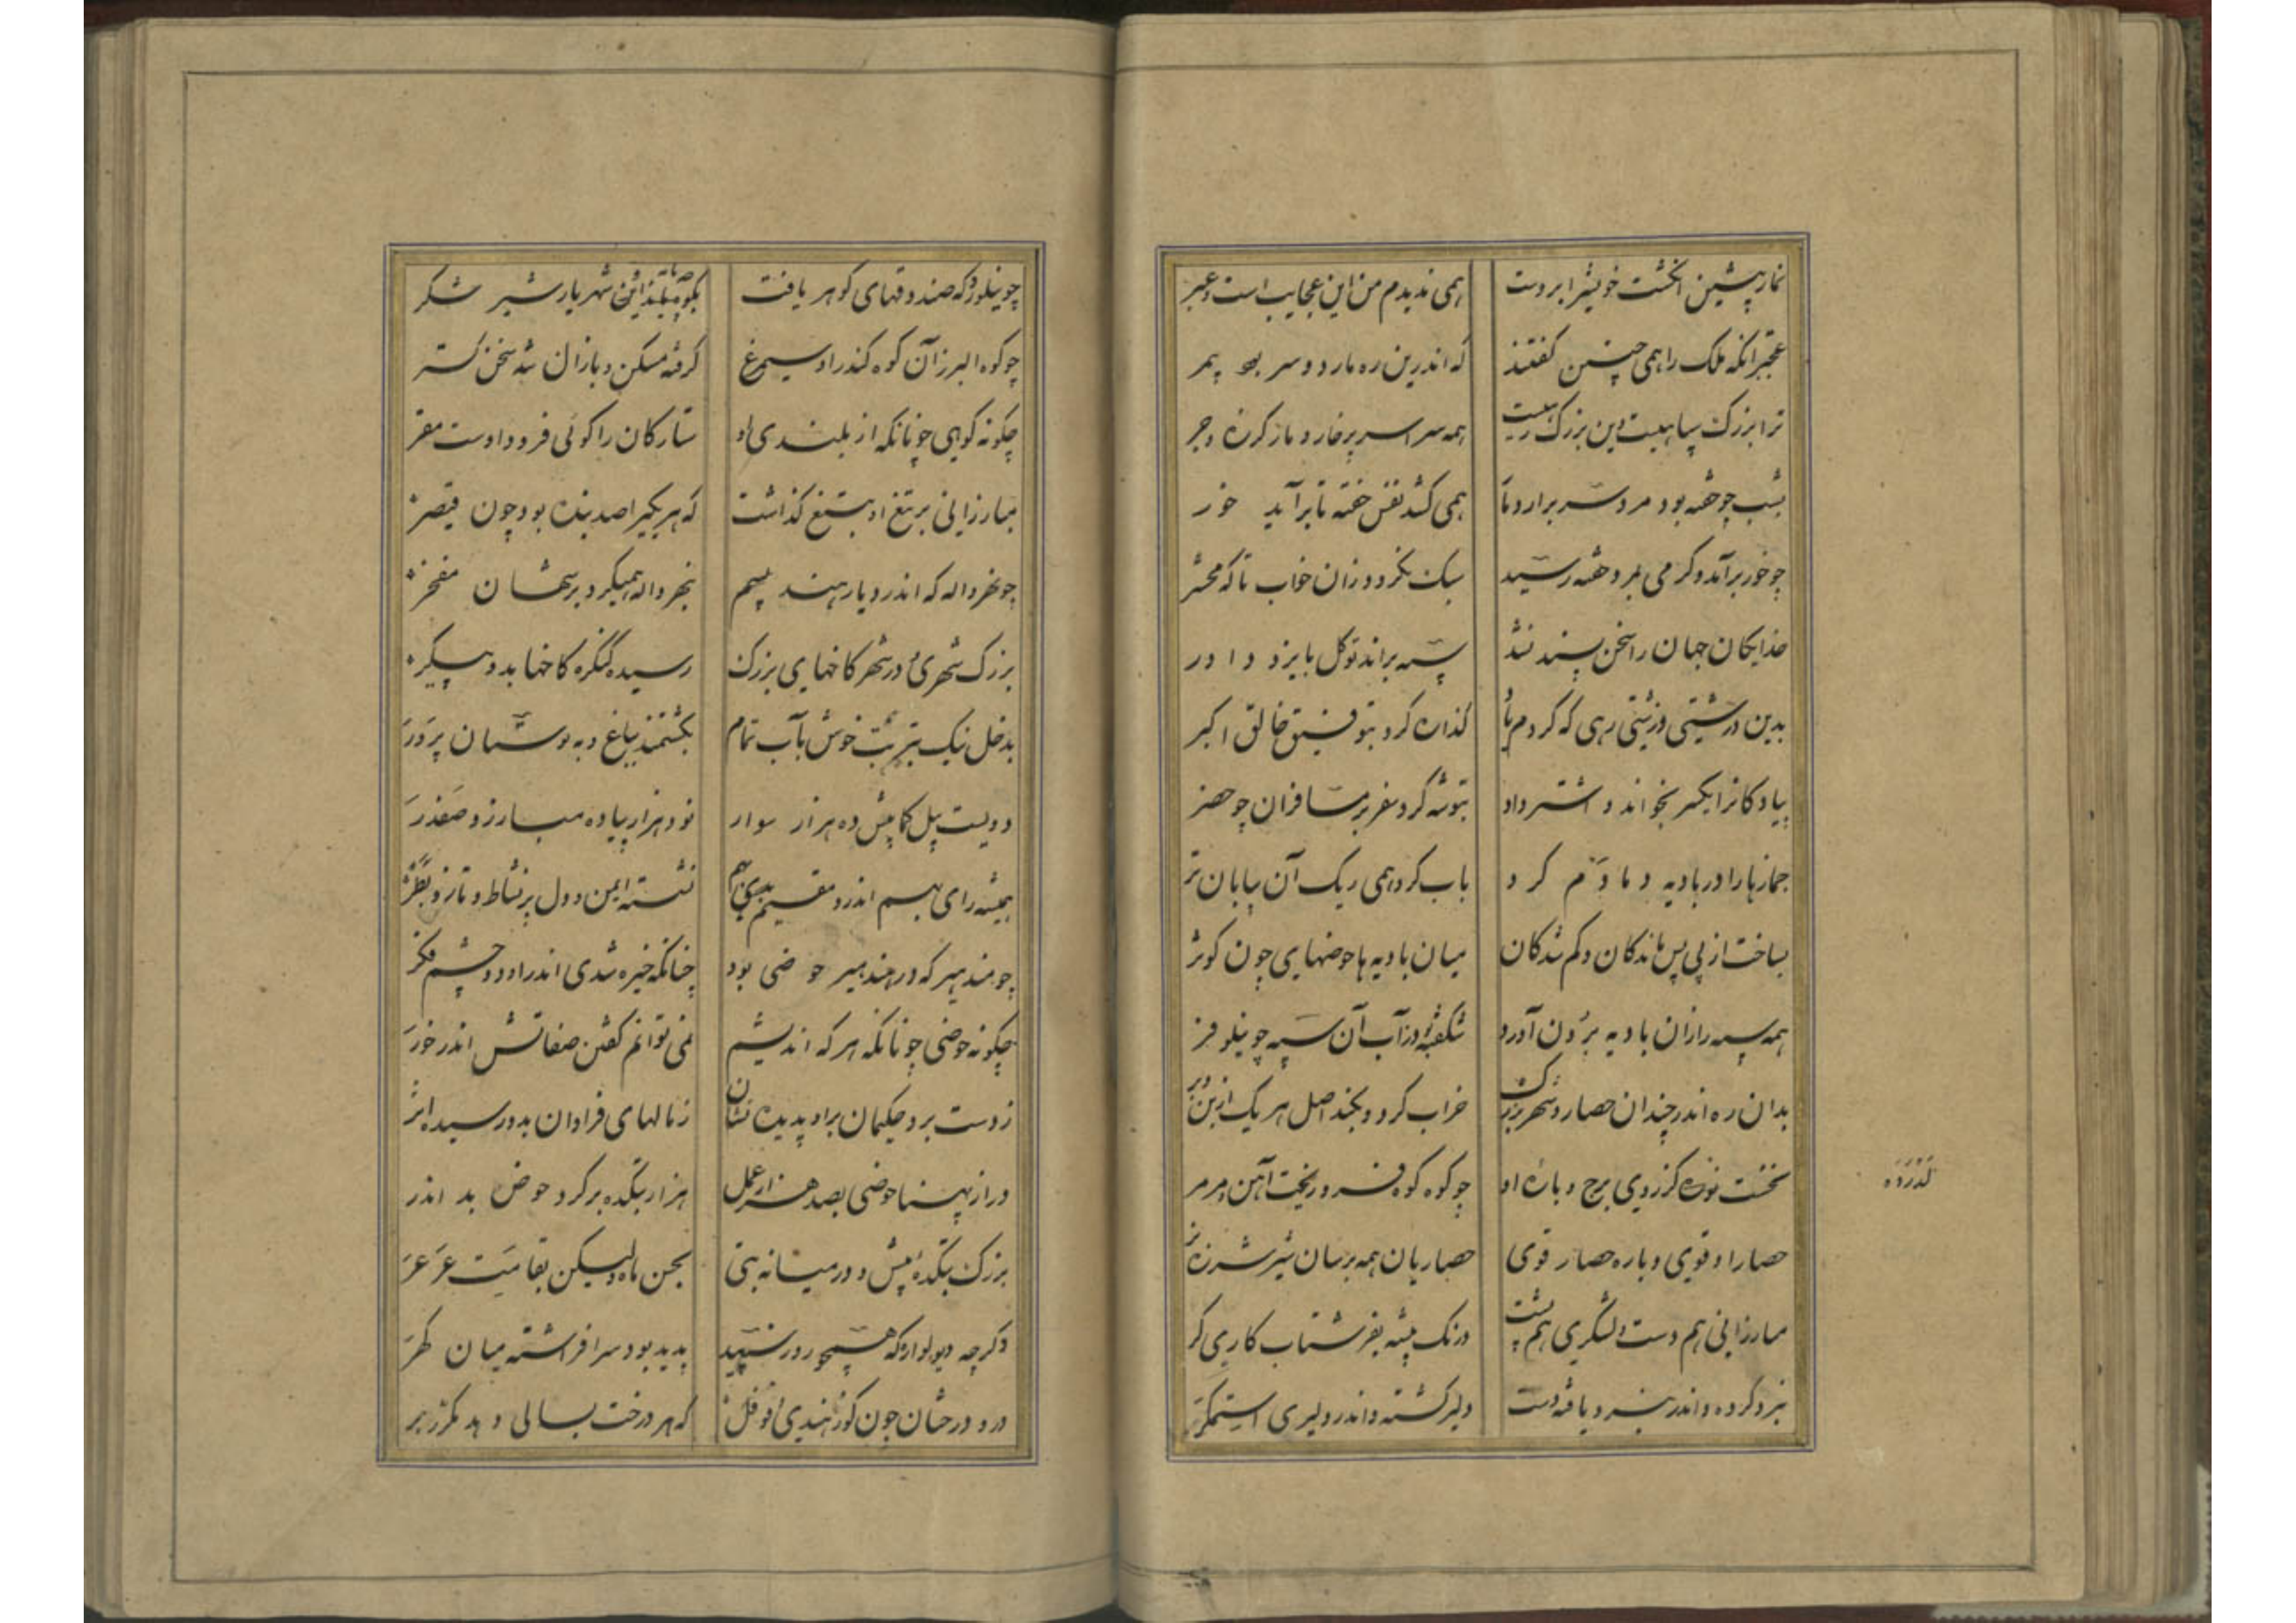 نماز پیشین انگشت خویش را بر دست همی ندیدم من این عجایب است و عبر
عجبتر آنکه ملک را همی چنین گفتند که اندرین ره مار دو سر بود بیمر
همه سراسر پر خار و مار کرزه و جر
بشب چو خفته بود مرد سر برارد مار همی کشد نفس خفته تا برآید خور
چو خور برآید و کرمی بمرد خفته رسید سبک نکردد زان خواب تا که محشر
خدایکان جهان را سخن پسند نشد سپه براند توکل بایزد داور
بدین درشتی و زشتی رهی که کردم یاد گذاره کرد بتوفیق خالق اکبر
پیادکانرا یکسر بخواند و اشتر داد بتوشه کرد سفر بر مسافران چو حضر
جمازها را در بادیه دمادم کرد باب کرد همی ریک آن بیابان تر
بساخت از پی پس ماندکان و کم شدکان میان بادیه ها حوضهایی چون کوثر
همه سپه را زان بادیه برون آورد شکفته در آب آن سپه چو نیلوفر
بدان ره اندر چندان حصار و شهر بزرک خراب کرد و بکند اصل هر یک از بن و بر
لدروه
نخست لدروه کز روی برج و باره او چو کوه کوه فرو ریخت آهن و مرمر
حصار او قوی و باره حصار قوی حصاریان همه بر سان شیر شرزه نر
مبارزانی هم دست و لشکری هم پشت درنک پیشه بفر شتاب کاری کر
نبرد کرده و اندر نبرد یافته دست دلیر کشته و اندر دلیری استمکر
چو چیکلودر که صندوقهای کوهر یافت بکوه پایه آن شهریار شیر شکر
چو کوه البرز آن کوه کندر او سیمرغ کرفته مسکن و با زال شد سخن کستر
چکونه کوهی چونانکه از بلندی او ستارکان را کوئی فرود اوست مقر
مبارزانی بر تیغ او بتیغ کذاشت که هر یکی را صد بنده بود چون قیصر
چو نهرواله که اندر دیار هند بهیم بنهرواله همیکرد بر شهان مفخر
بزرک شهری و در شهر کاخهایی بزرک رسیده کنکره کاخها بدو پیکر
بدخل نیک و بتربت خوش و بآب تمام بکشتمند و بباغ و ببوستان برور
دویست پیل کمابیش ده هزار سوار نود هزار پیاده مبارز و صفدر
همیشه رای بهیم اندرو مقیم بدی نشسته ایمن و دل پر نشاط و ناز و بطر
چو مندهیر که در مندهیر حوضی بود چنانکه خیره شدی اندر او دو چشم فکر
چکونه حوضی چونانکه هر که اندیشم نمی توانم کفتن صفاتش اندر خور
ز دست برد حکیمان بر او پدیده نشان ز مالهای فراوان بدو رسیده اثر
دراز پهنا حوضی بصد هزار عمل هزار بتکده بر کرد حوض بد اندر
بزرک بتکده پیش و در میانه بتی بحسن ماه ولیکن بقامت عرعر
پدید بود سر افراشته میان کهر
درو درختان چون کوز هندی و فوفل که هر درخت بسالی دهد مکرر بر